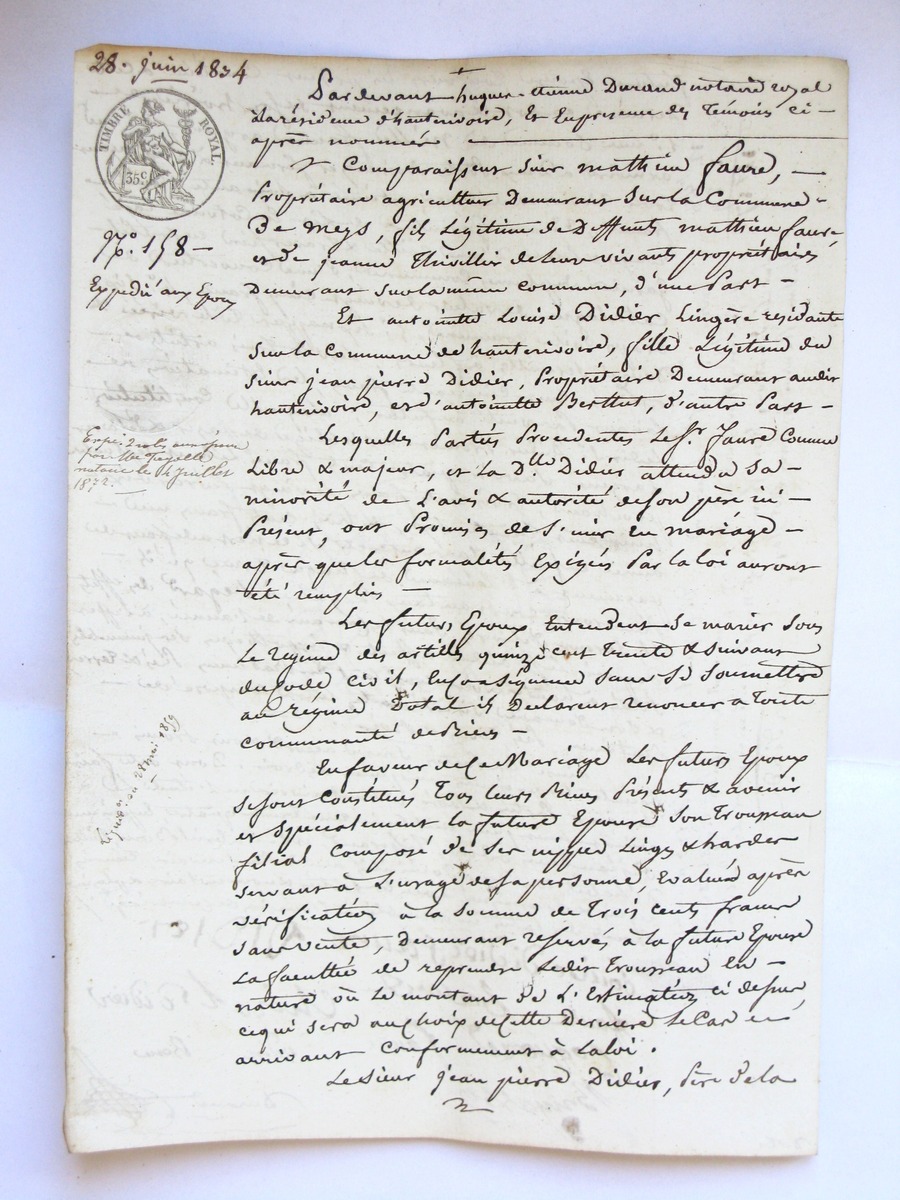 28. juin 1834
TIMBRE ROYAL.
35 c
N.° 158 —
Expedié aux Epoux
Expé. 2 rolles aux époux
par Me
notaire le 4 Juillet
1872.
28 mai 1859
Pardevant hugues-étienne Durand notaire royal
à la résidence d'hauterivoire, Et En présence des Témoins ci-
après nommés
Comparaissent Sieur mathieu faure, —
Propriétaire agriculteur Demeurant Sur la Commune -
De meys, fils Légitime de Deffunts mathieu faure,
et de jeanne Thivillier de leur vivants propriétaires
Demeurant sur la même commune, d'une Part —
Et antoinette Louise Didier Lingère résidante
Sur la Commune de hauterivoire, fille Légitime du
Sieur jean pierre Didier, Propriétaire Demeurant audit
hauterivoire, et d'antoinette Berthet, d'autre Part —
Lesquelles Parties Procedentes Le Sr. faure Comme
Libre & majeur, et La Dlle Didier attendu Sa —
minorité de L'avis & autorité de son père ici —
Présent, ont Promis de S'unir en mariage —
après que les formalités Exigées Par la loi auront
été remplies —
Les futurs Epoux Entendent Se marier Sous
Le régime des articles quinze cent Trente & Suivant
du Code Civil, En Conséquence Sans Se Soumettre
au régime Dotal ils Declarent renoncer à Toute
communauté de Biens —
En faveur de Ce Mariage Les futurs Epoux
se sont Constitués Tous Leurs Biens Présents & avenir
et Spécialement la future Epouse Son Trousseau
filial Composé de Ses nippes Linges & hardes
servant à L'usage de sa personne, Evalués après
vérification à la Somme de Trois Cents francs
sans vente, Demeurant reservés à la future Epouse
La facultée de reprendre Ledit Trousseau En —
nature où Le montant de L'Estimation ci dessus,
ce qui sera au Choix de Cette Dernière Le Cas —
arrivant Conformement à La loi.
Le Sieur jean pierre Didier, Père de la